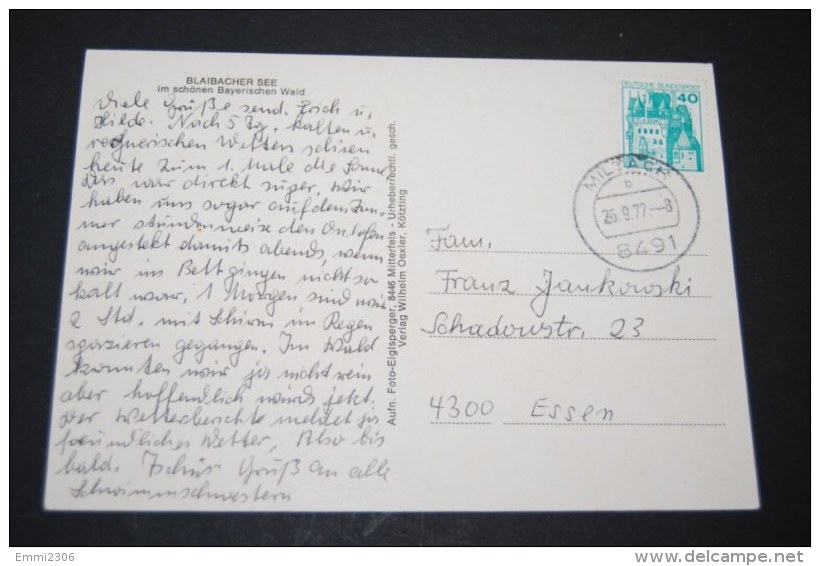 BLAIBACHER SEE
im schönen Bayerischen Wald
Viele Grüße send. Erich u.
Hilde. Nach 5 Tg. kalten u.
regnerischen Wetters schien
heute zum 1. Male die Sonne
Das war direkt super. Wir
haben uns sogar auf dem Zim-
mer stundenweise den Onlofen
angestekt damits abends, wenn
wir ins Bett gingen nicht so
kalt war, 1 Morgen sind wir
2 Std. mit Schirm im Regen
spazieren gegangen. Im Wald
konnten wir ja nicht rein
aber hoffendlich wirds jetzt.
Der Wetterberichte meldet ja
freundliches Wetter, Also bis
bald. Tschüs Gruß an alle
Schwimmschwestern
Aufn. Foto-Eiglsperger, 8446 Mitterfels - Urheberrechtl. gesch.
Verlag Wilhelm Oexler, Kötzting
DEUTSCHE BUNDESPOST
40
MILTACH
b
26.9.77.-8
8491
Fam.
Franz Jankowski
Schadowstr. 23
4300 Essen
Emmi2306
http://www.delcampe.net